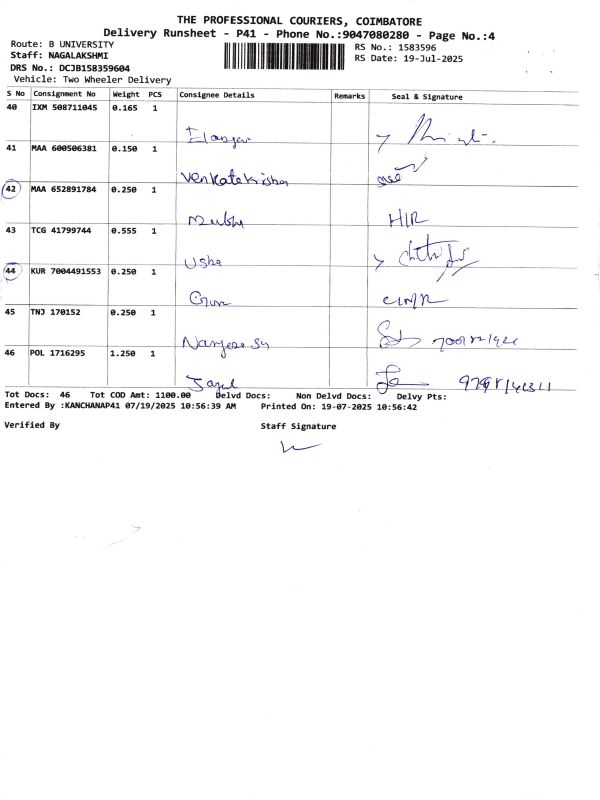 THE PROFESSIONAL COURIERS, COIMBATORE
Delivery Runsheet - P41 - Phone No.:9047080280 - Page No.:4
Route: B UNIVERSITY
RS No.: 1583596
Staff: NAGALAKSHMI
RS Date: 19-Jul-2025
DRS No.: DCJB158359604
Vehicle: Two Wheeler Delivery
S No Consignment No Weight PCS Consignee Details Remarks Seal & Signature
40 IXM 508711045 0.165 1
41 MAA 600506381 0.150 1
Venkatakrishna
42 MAA 652891784 0.250 1
H/R
43 TCG 41799744 0.555 1
Usha
44 KUR 7004491553 0.250 1
45 TNJ 170152 0.250 1
46 POL 1716295 1.250 1
Tot Docs: 46 Tot COD Amt: 1100.00 Delvd Docs: Non Delvd Docs: Delvy Pts:
Entered By :KANCHANAP41 07/19/2025 10:56:39 AM Printed On: 19-07-2025 10:56:42
Verified By Staff Signature